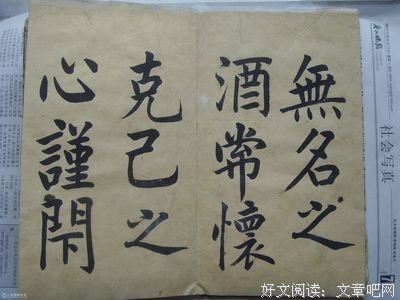 無名之
酒常懷
克己之
心謹閇
社会写真
7
好文阅读：文章吧网